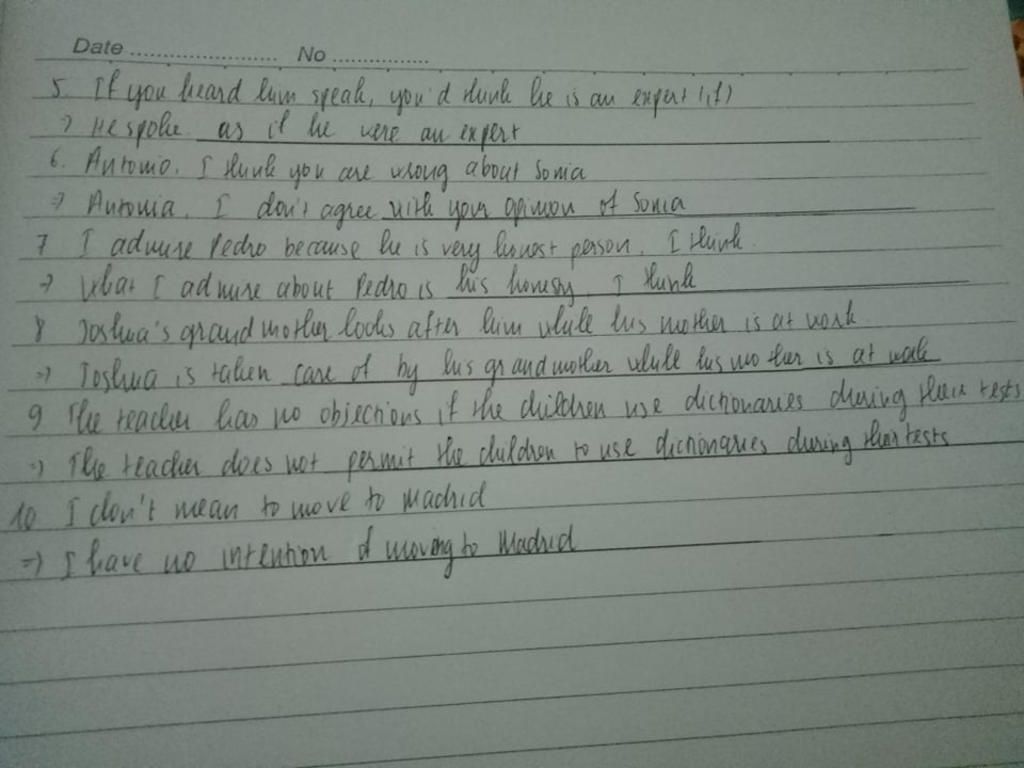 Date ........................ No ................
5. If you heard him speak, you'd think he is an expert (if)
=> He spoke as if he were an expert
6. Antonio. I think you are wrong about Sonia
=> Antonia. I don't agree with your opinion of Sonia
7 I admire Pedro because he is very honest person. I think.
=> What I admire about Pedro is his honesty. I think
8 Joshua's grandmother looks after him while his mother is at work
=> Joshua is taken care of by his grandmother while his mother is at work
9 The teacher has no objections if the children use dictionaries during their tests
=> The teacher does not permit the children to use dictionaries during their tests
10 I don't mean to move to Madrid
=> I have no intention of moving to Madrid